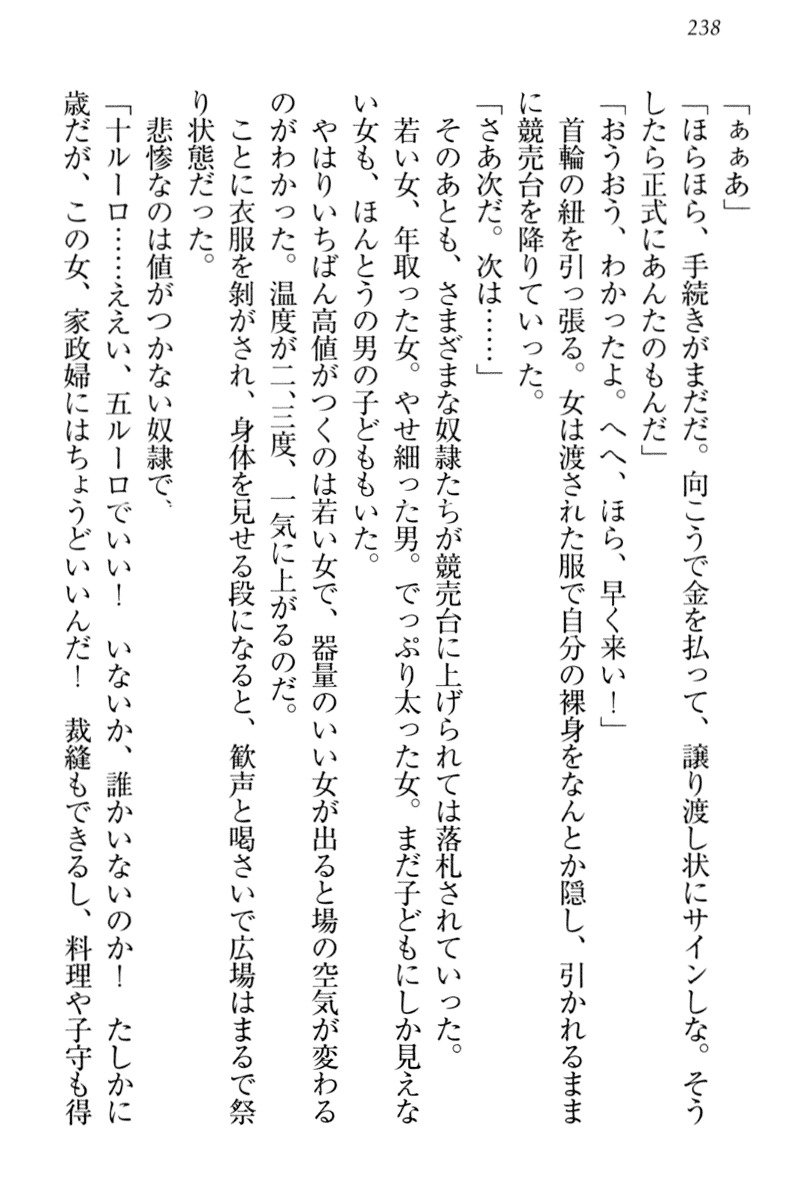 238
「ぁぁあ」
「ほらほら、手続きがまだだ。向こうで金を払って、譲り渡し状にサインしな。そう
したら正式にあんたのもんだ」
「おうおう、わかったよ。へへ、ほら、早く来い！」
首輪の紐を引っ張る。女は渡された服で自分の裸身をなんとか隠し、引かれるまま
に競売台を降りていった。
「さあ次だ。次は……」
そのあとも、さまざまな奴隷たちが競売台に上げられては落札されていった。
若い女、年取った女。やせ細った男。でっぷり太った女。まだ子どもにしか見えな
い女も、ほんとうの男の子どももいた。
やはりいちばん高値がつくのは若い女で、器量のいい女が出ると場の空気が変わる
のがわかった。温度が二、三度、一気に上がるのだ。
ことに衣服を剝がされ、身体を見せる段になると、歓声と喝さいで広場はまるで祭
り状態だった。
悲惨なのは値がつかない奴隷で、
「十ルーロ……ええい、五ルーロでいい！　いないか、誰かいないのか！　たしかに
歳だが、この女、家政婦にはちょうどいいんだ！　裁縫もできるし、料理や子守も得